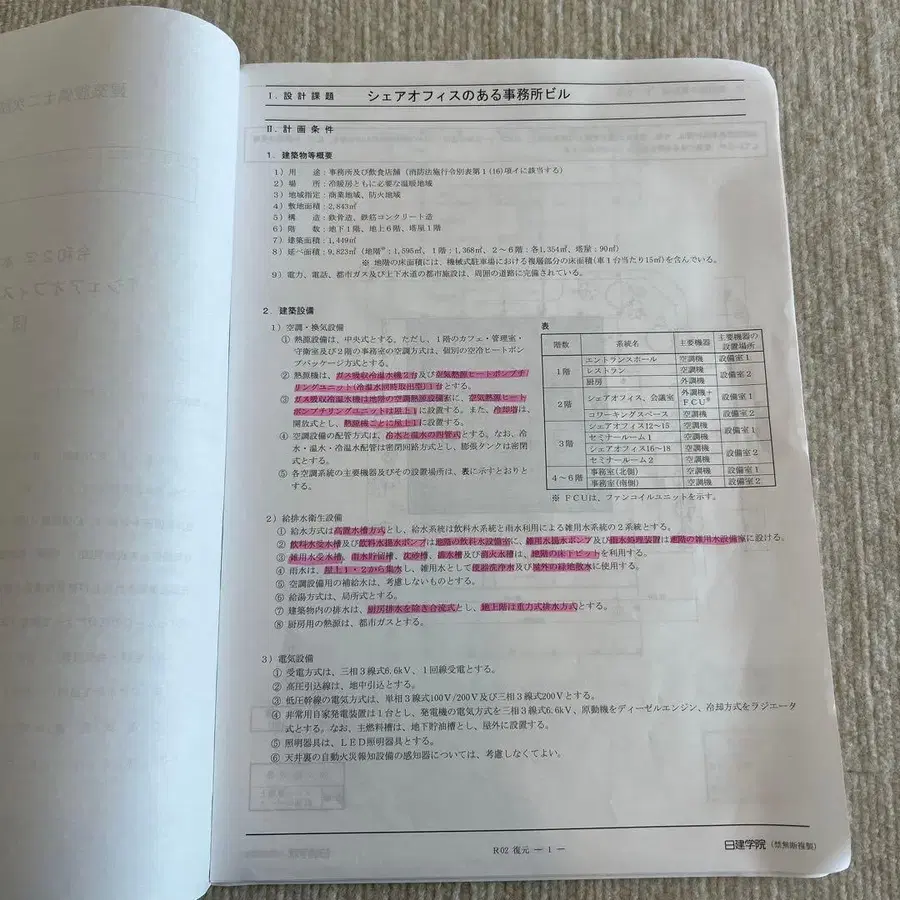 Ⅰ．設計課題　シェアオフィスのある事務所ビル
Ⅱ．計画条件
1．建築物等概要
1）用　途：事務所及び飲食店舗（消防法施行令別表第1（16）項イに該当する）
2）場　所：冷暖房ともに必要な温暖地域
3）地域指定：商業地域、防火地域
4）敷地面積：2,843㎡
5）構　造：鉄骨造、鉄筋コンクリート造
6）階　数：地下1階、地上6階、塔屋1階
7）建築面積：1,449㎡
8）延べ面積：9,823㎡（地階※：1,595㎡、1階：1,368㎡、2～6階：各1,354㎡、塔屋：90㎡）
※ 地階の床面積には、機械式駐車場における複層部分の床面積（車1台当たり15㎡）を含んでいる。
9）電力、電話、都市ガス及び上下水道の都市施設は、周囲の道路に完備されている。
2．建築設備
1）空調・換気設備
① 熱源設備は、中央式とする。ただし、1階のカフェ・管理室・
守衛室及び2階の事務室の空調方式は、個別の空冷ヒートポン
プパッケージ方式とする。
② 熱源機は、ガス吸収冷温水機2台及び空気熱源ヒートポンプチ
リングユニット（冷温水同時取出型）1台とする。
③ ガス吸収冷温水機は地階の空調熱源設備室に、空気熱源ヒート
ポンプチリングユニットは屋上1に設置する。また、冷却塔は、
開放式とし、熱源機ごとに屋上1に設置する。
④ 空調設備の配管方式は、冷水と温水の四管式とする。なお、冷
水・温水・冷温水配管は密閉回路方式とし、膨張タンクは密閉
式とする。
⑤ 各空調系統の主要機器及びその設置場所は、表に示すとおりと
する。
表
階数　系統名　主要機器　主要機器の設置場所
1階　エントランスホール　空調機　設備室1
レストラン　空調機　設備室2
厨房　外調機
2階　シェアオフィス、会議室　外調機＋FCU※　設備室1
コワーキングスペース　空調機　設備室2
3階　シェアオフィス12～15　空調機　設備室1
セミナールーム1　空調機
シェアオフィス16～18　空調機　設備室2
セミナールーム2　空調機
4～6階　事務室（北側）　空調機　設備室1
事務室（南側）　空調機　設備室2
※ FCUは、ファンコイルユニットを示す。
2）給排水衛生設備
① 給水方式は高置水槽方式とし、給水系統は飲料水系統と雨水利用による雑用水系統の2系統とする。
② 飲料水受水槽及び飲料水揚水ポンプは地階の飲料水設備室に、雑用水揚水ポンプ及び雨水処理装置は地階の雑用水設備室に設ける。
③ 雑用水受水槽、雨水貯留槽、沈砂槽、蓄水槽及び消火水槽は、地階の床下ピットを利用する。
④ 雨水は、屋上1・2から集水し、雑用水として便所洗浄水及び屋外の緑地散水に使用する。
⑤ 空調設備用の補給水は、考慮しないものとする。
⑥ 給湯方式は、局所式とする。
⑦ 建築物内の排水は、厨房排水を除き合流式とし、地上階は重力式排水方式とする。
⑧ 厨房用の熱源は、都市ガスとする。
3）電気設備
① 受電方式は、三相3線式6.6kV、1回線受電とする。
② 高圧引込線は、地中引込とする。
③ 低圧幹線の電気方式は、単相3線式100V/200V及び三相3線式200Vとする。
④ 非常用自家発電装置は1台とし、発電機の電気方式を三相3線式6.6kV、原動機をディーゼルエンジン、冷却方式をラジエータ
式とする。なお、主燃料槽は、地下貯油槽とし、屋外に設置する。
⑤ 照明器具は、LED照明器具とする。
⑥ 天井裏の自動火災報知設備の感知器については、考慮しなくてよい。
R02 復元 － 1 －
日建学院（禁無断複製）